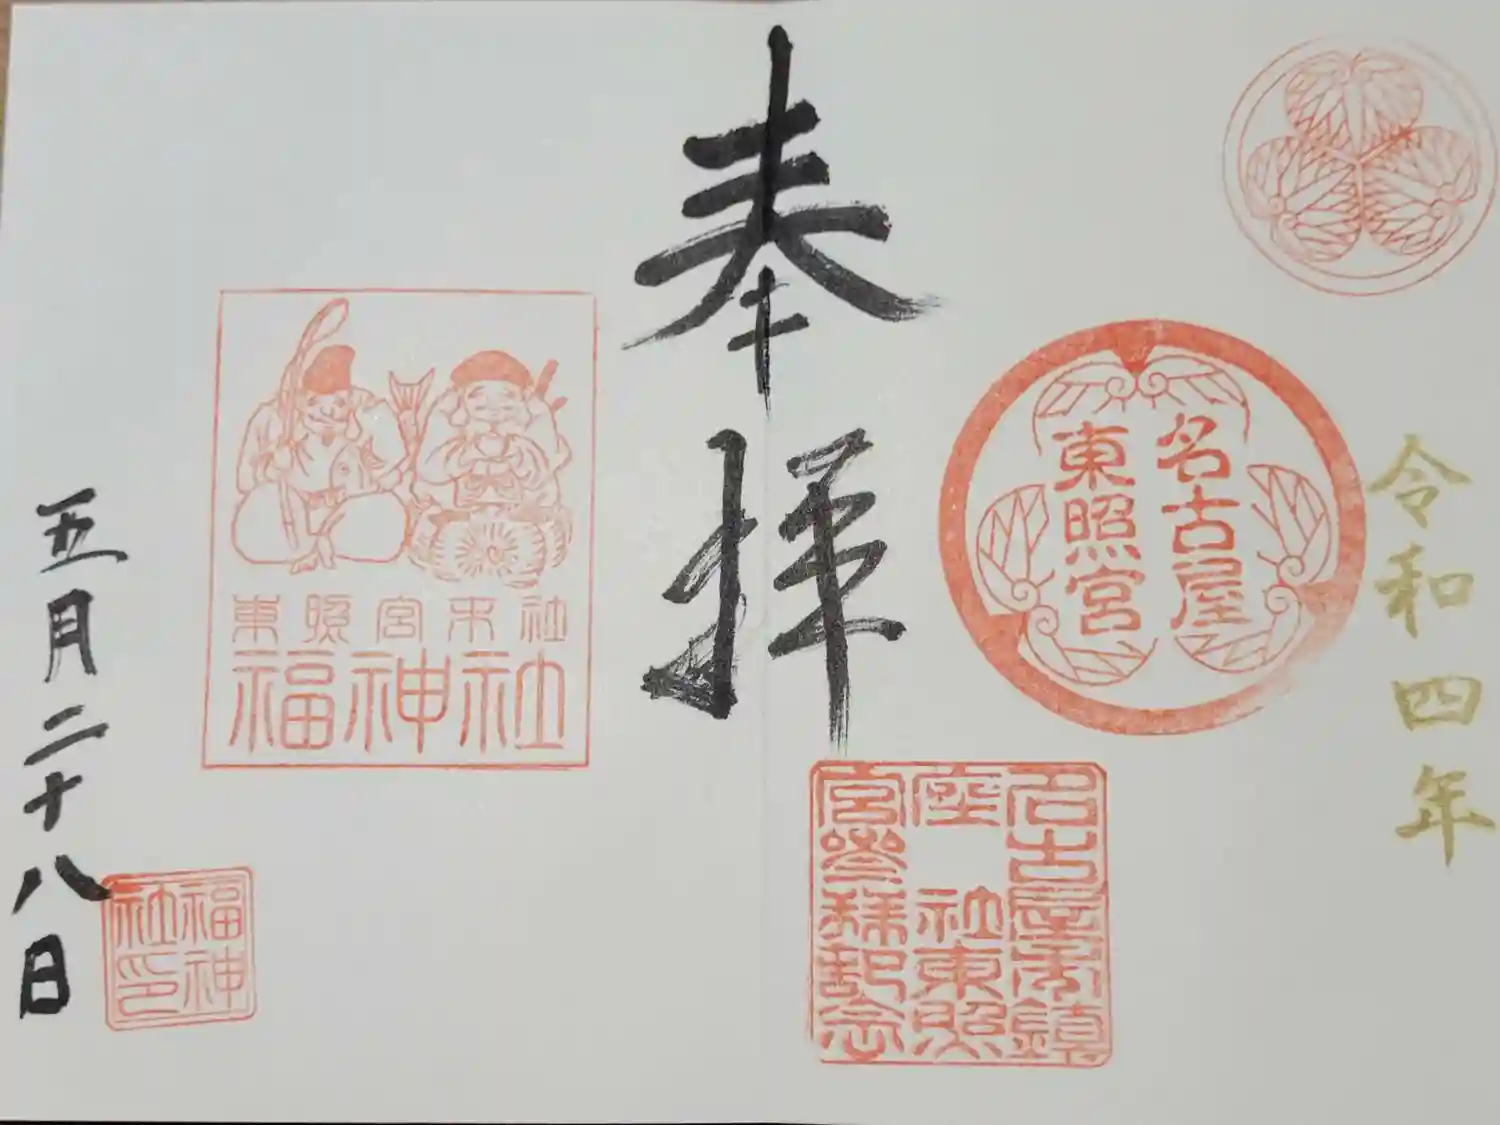 令和四年
名古屋
東照宮
名古屋市鎮
座 社東照
宮参拜記念
奉拝
東照宮末社
福神社
福神
社印
五月二十八日